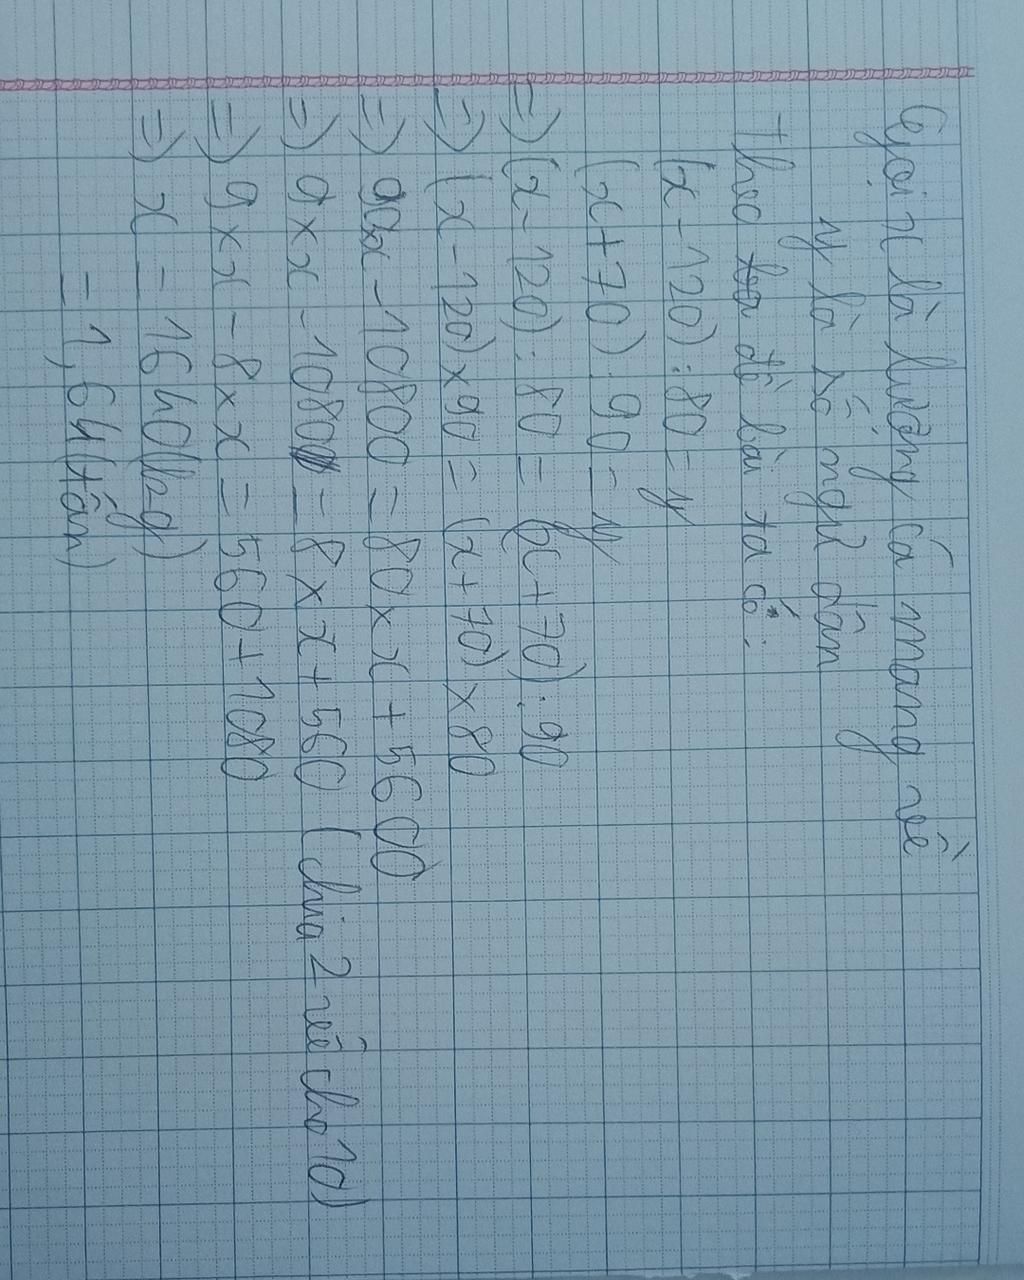 Gọi x là lượng cá mang về
y là số ngư dân
Theo đề bài ta có:
(x - 120) : 80 = y
(x + 70) : 90 = y
=) (x - 120) : 80 = (x + 70) : 90
=) (x - 120) x 90 = (x + 70) x 80
=) 90x x - 10800 = 80 x x + 5600
=) 9 x x - 1080 = 8 x x + 560 (chia 2 vế cho 10)
=) 9 x x - 8 x x = 560 + 1080
=) x = 1640 (kg)
= 1,64 (tấn)